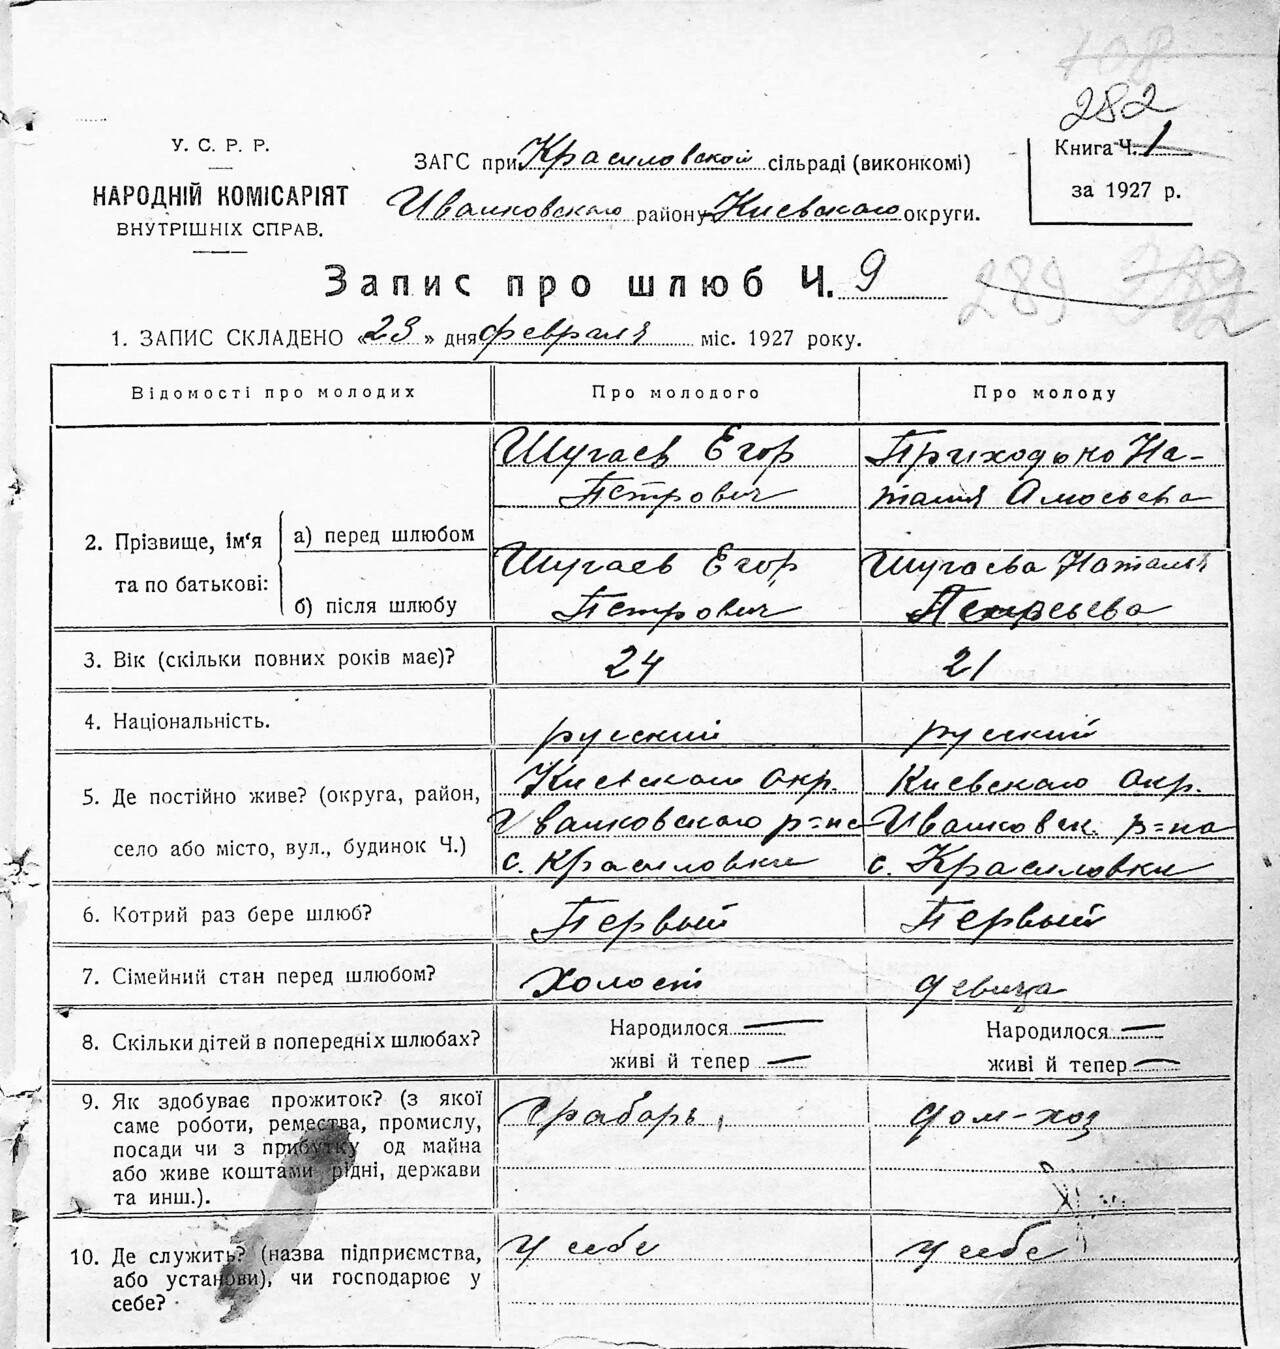 108
282
У. С. Р. Р.
НАРОДНІЙ КОМІСАРІЯТ
ВНУТРІШНІХ СПРАВ.
ЗАГС при Красиловской сільраді (виконкомі)
Иванковского району Киевского округи.
Книга Ч. 1
за 1927 р.
Запис про шлюб Ч. 9
289
1. ЗАПИС СКЛАДЕНО «23» дня февраля міс. 1927 року.
Відомості про молодих
Про молодого
Про молоду
2. Прізвище, ім'я
та по батькові:
а) перед шлюбом
Шугаев Егор
Петрович
Приходько На-
талия Амосьева
б) після шлюбу
Шугаев Егор
Петрович
Шугаева Наталья
3. Вік (скільки повних років має)?
24
21
4. Національність.
русский
русский
5. Де постійно живе? (округа, район,
село або місто, вул., будинок Ч.)
Киевского окр.
Иванковского р=на
с. Красиловки
Киевского окр.
Иванковск. р=на
с. Красиловки
6. Котрий раз бере шлюб?
Первый
Первый
7. Сімейний стан перед шлюбом?
холост
девица
8. Скільки дітей в попередніх шлюбах?
Народилося —
живі й тепер —
Народилося —
живі й тепер —
9. Як здобуває прожиток? (з якої
саме роботи, ремества, промислу,
посади чи з прибутку од майна
або живе коштами рідні, держави
та инш.).
грабарь,
дом-хоз
10. Де служить? (назва підприємства,
або установи), чи господарює у
себе?
у себе
у себе